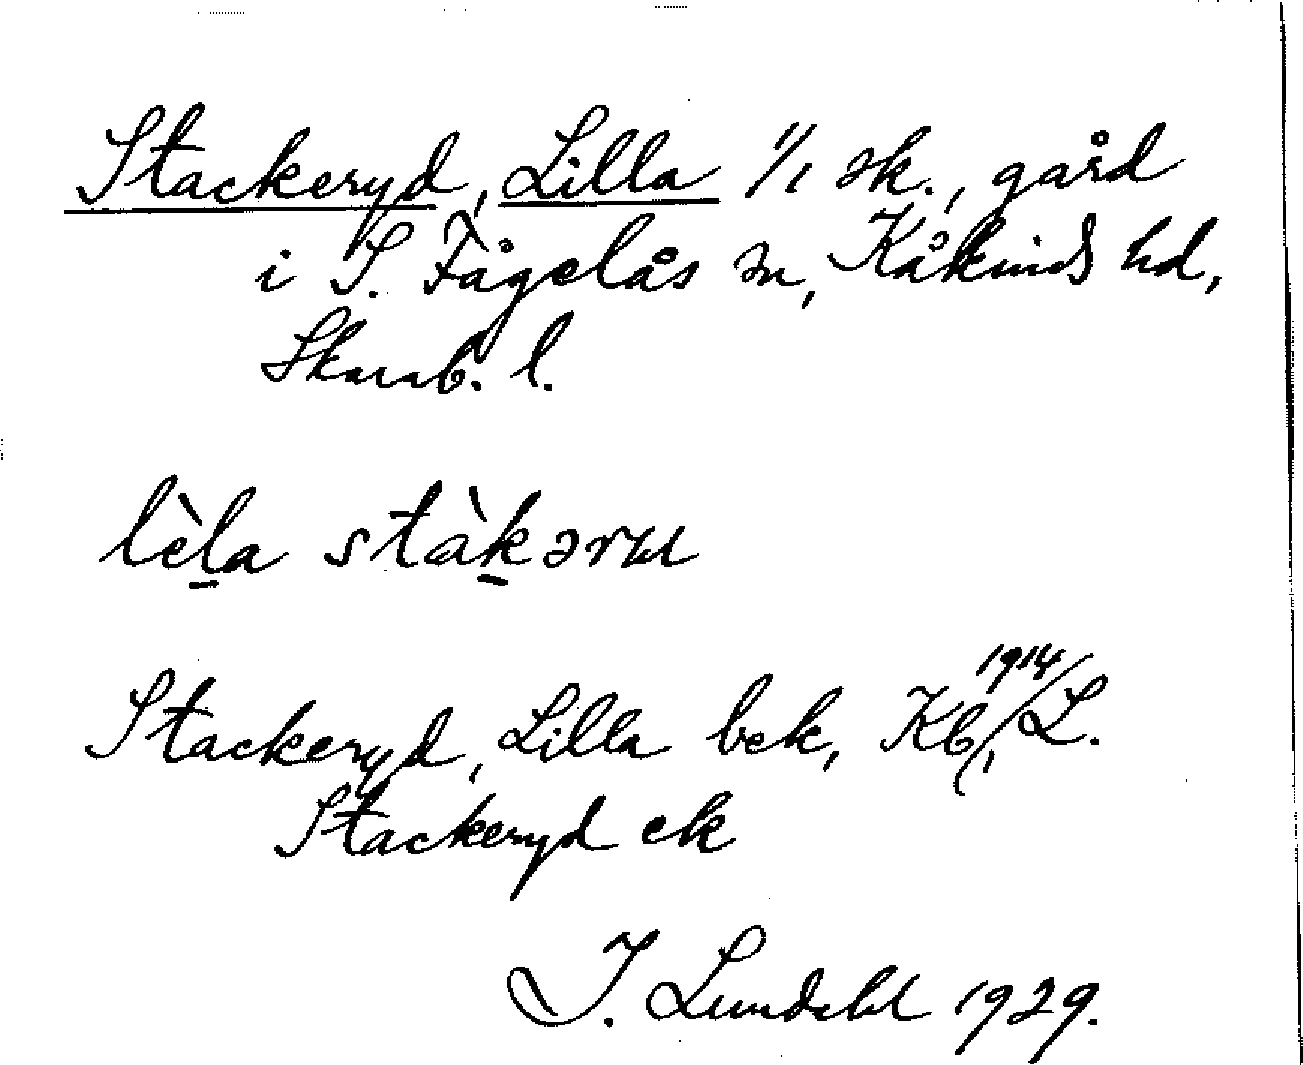 Stackeryd, Lilla 1/1 sk., gård
i S. Fågelås sn, Kåkinds hd,
Skarab. l.
lèla stàkərɯ
Stackeryd, Lilla bek, Kb, 1914/L.
Stackeryd ek
I. Lundahl 1929.